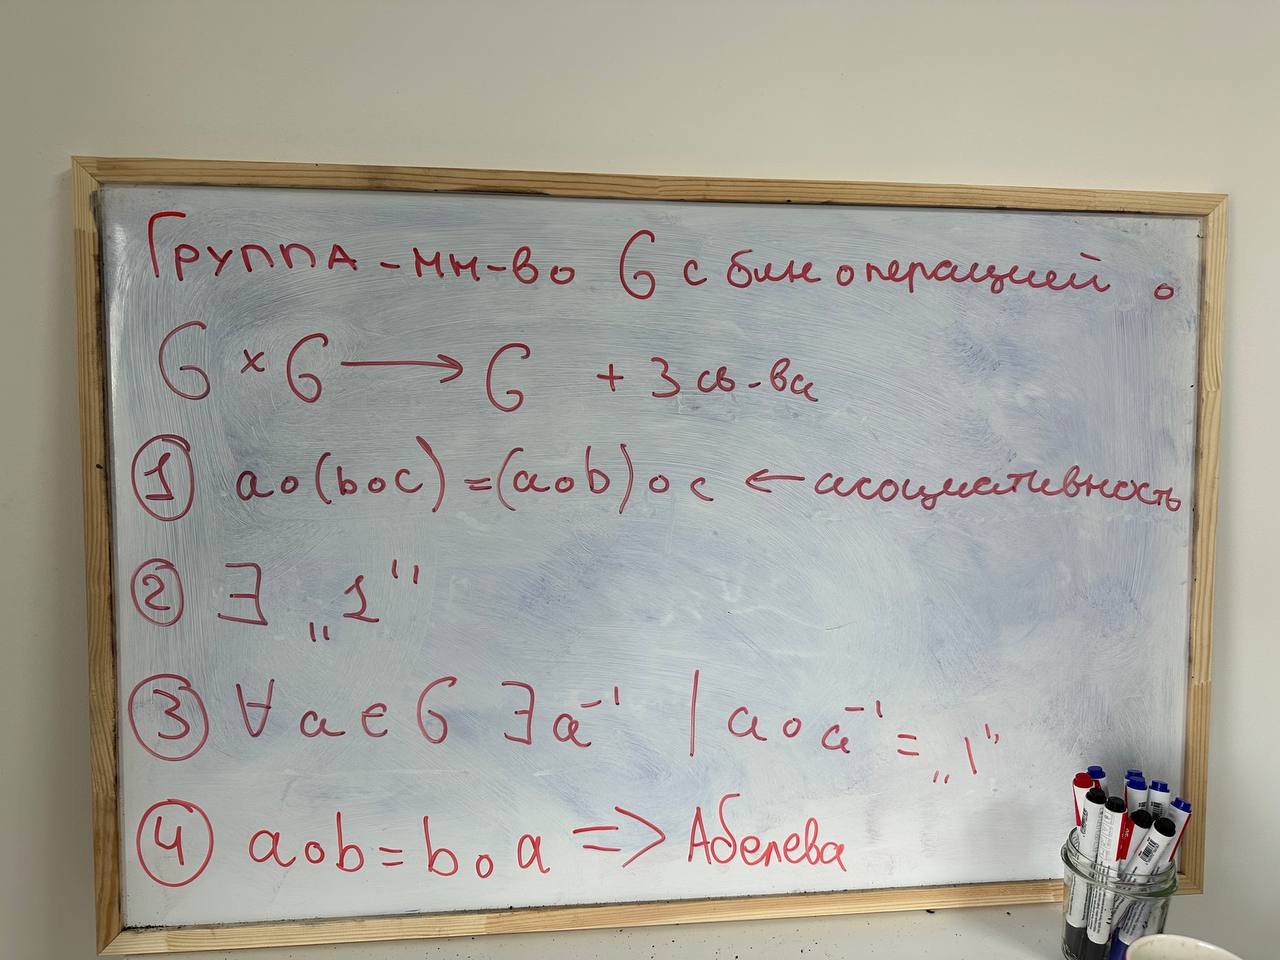 Группа - мн-во G с бин операцией ∘
G × G ⟶ G + 3 св-ва
① a∘(b∘c) = (a∘b)∘c ← асоциативность
② ∃ „1“
③ ∀ a ∈ G ∃ a⁻¹ | a∘a⁻¹ = „1“
④ a∘b = b∘a => Абелева